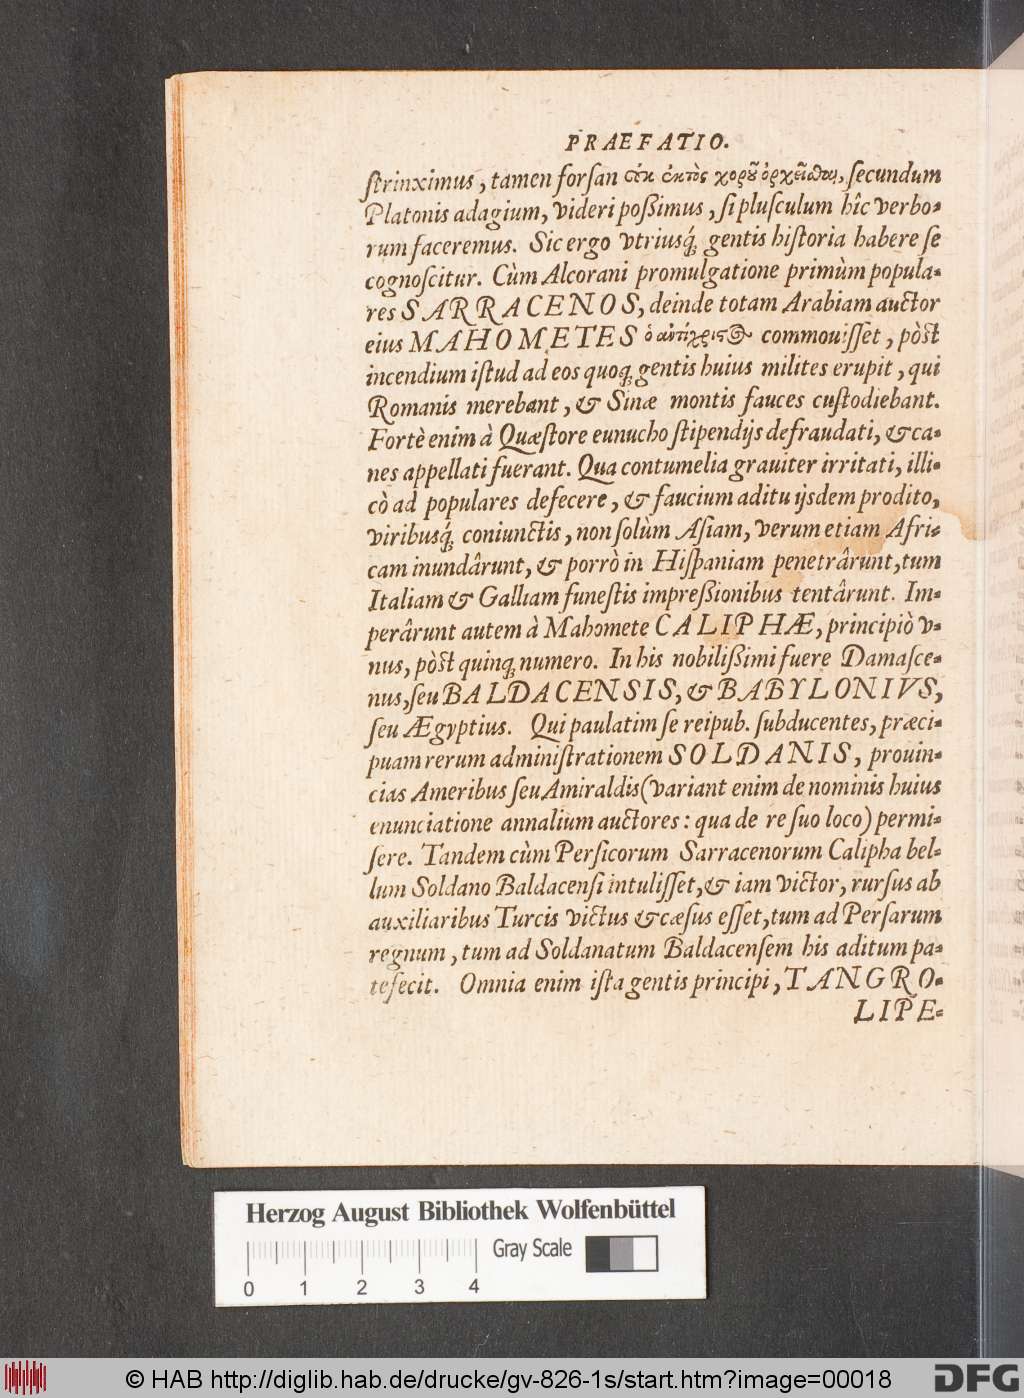 PRAEFATIO.
ſtrinximus, tamen forſan οὐκ ἐκτὸς χοροῦ ὀρχεῖσθαι, ſecundum
Platonis adagium, videri poßimus, ſi pluſculum hîc verbo-
rum faceremus. Sic ergo vtriusq́; gentis hiſtoria habere ſe
cognoſcitur. Cùm Alcorani promulgatione primùm popula-
res SARRACENOS, deinde totam Arabiam auctor
eius MAHOMETES ὁ ἀντίχριστος commouiſſet, pòſt
incendium iſtud ad eos quoq; gentis huius milites erupit, qui
Romanis merebant, & Sinæ montis fauces cuſtodiebant.
Fortè enim à Quæſtore eunucho ſtipendijs defraudati, & ca-
nes appellati fuerant. Qua contumelia grauiter irritati, illi-
cò ad populares defecere, & faucium aditu ijsdem prodito,
viribusq́; coniunctis, non ſolùm Aſiam, verum etiam Afri-
cam inundârunt, & porrò in Hiſpaniam penetrârunt, tum
Italiam & Galliam funeſtis impreßionibus tentârunt. Im-
perârunt autem à Mahomete CALIPHÆ, principiò v-
nus, pòſt quinq; numero. In his nobilißimi fuere Damaſce-
nus, ſeu BALDACENSIS, & BABYLONIVS,
ſeu Ægyptius. Qui paulatim ſe reipub. ſubducentes, præci-
puam rerum adminiſtrationem SOLDANIS, prouin-
cias Ameribus ſeu Amiraldis (variant enim de nominis huius
enunciatione annalium auctores: qua de re ſuo loco) permi-
ſere. Tandem cùm Perſicorum Sarracenorum Calipha bel-
lum Soldano Baldacenſi intuliſſet, & iam victor, rurſus ab
auxiliaribus Turcis victus & cæſus eſſet, tum ad Perſarum
regnum, tum ad Soldanatum Baldacenſem his aditum pa-
tefecit. Omnia enim iſta gentis principi, TANGRO-
LIPE-
Herzog August Bibliothek Wolfenbüttel
Gray Scale
0 1 2 3 4
© HAB http://diglib.hab.de/drucke/gv-826-1s/start.htm?image=00018
DFG